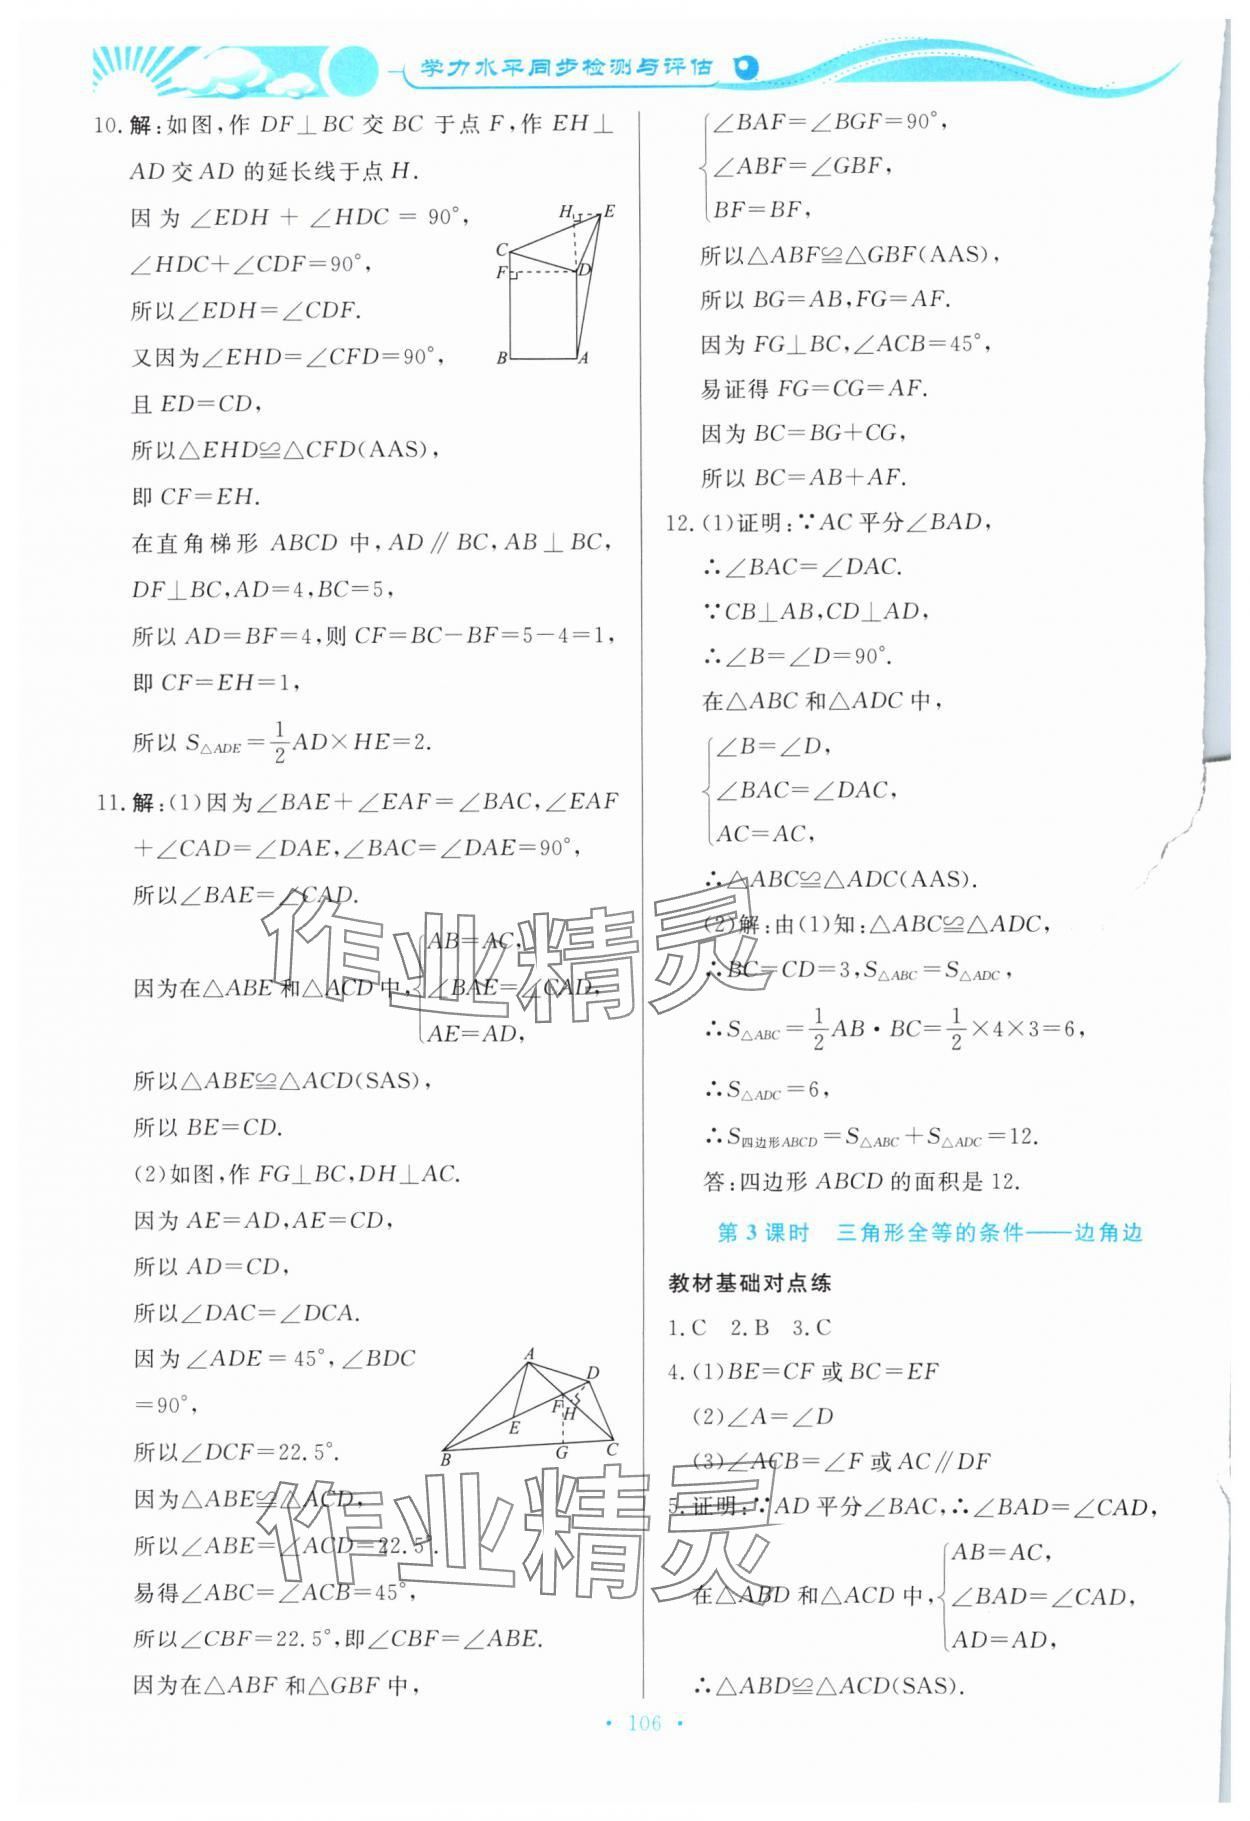 学力水平同步检测与评估
10. 解:如图,作 DF⊥BC 交 BC 于点 F,作 EH⊥
AD 交 AD 的延长线于点 H.
因为 ∠EDH + ∠HDC = 90°,
∠HDC+∠CDF=90°,
所以∠EDH=∠CDF.
又因为∠EHD=∠CFD=90°,
且 ED=CD,
所以△EHD≌△CFD(AAS),
即 CF=EH.
H E
C
F D
B A
在直角梯形 ABCD 中,AD∥BC,AB⊥BC,
DF⊥BC,AD=4,BC=5,
所以 AD=BF=4,则 CF=BC-BF=5-4=1,
即 CF=EH=1,
所以 S△ADE=1/2AD×HE=2.
11. 解:(1)因为∠BAE+∠EAF=∠BAC,∠EAF
+∠CAD=∠DAE,∠BAC=∠DAE=90°,
所以∠BAE=∠CAD.
AB=AC,
因为在△ABE 和△ACD 中,∠BAE=∠CAD,
AE=AD,
所以△ABE≌△ACD(SAS),
所以 BE=CD.
(2)如图,作 FG⊥BC,DH⊥AC.
因为 AE=AD,AE=CD,
所以 AD=CD,
所以∠DAC=∠DCA.
因为 ∠ADE = 45°,∠BDC
=90°,
所以∠DCF=22.5°.
因为△ABE≌△ACD,
所以∠ABE=∠ACD=22.5°.
易得∠ABC=∠ACB=45°,
所以∠CBF=22.5°,即∠CBF=∠ABE.
因为在△ABF 和△GBF 中,
A
D
F H
E
B G C
∠BAF=∠BGF=90°,
∠ABF=∠GBF,
BF=BF,
所以△ABF≌△GBF(AAS),
所以 BG=AB,FG=AF.
因为 FG⊥BC,∠ACB=45°,
易证得 FG=CG=AF.
因为 BC=BG+CG,
所以 BC=AB+AF.
12. (1)证明:∵AC 平分∠BAD,
∴∠BAC=∠DAC.
∵CB⊥AB,CD⊥AD,
∴∠B=∠D=90°.
在△ABC 和△ADC 中,
∠B=∠D,
∠BAC=∠DAC,
AC=AC,
∴△ABC≌△ADC(AAS).
(2)解:由(1)知:△ABC≌△ADC,
∴BC=CD=3,S△ABC=S△ADC,
∴S△ABC=1/2AB·BC=1/2×4×3=6,
∴S△ADC=6,
∴S四边形ABCD=S△ABC+S△ADC=12.
答:四边形 ABCD 的面积是 12.
第 3 课时 三角形全等的条件——边角边
教材基础对点练
1. C 2. B 3. C
4. (1)BE=CF 或 BC=EF
(2)∠A=∠D
(3)∠ACB=∠F 或 AC∥DF
5. 证明:∵AD 平分∠BAC,∴∠BAD=∠CAD,
AB=AC,
在△ABD 和△ACD 中,∠BAD=∠CAD,
AD=AD,
∴△ABD≌△ACD(SAS).
· 106 ·
作业精灵
作业精灵